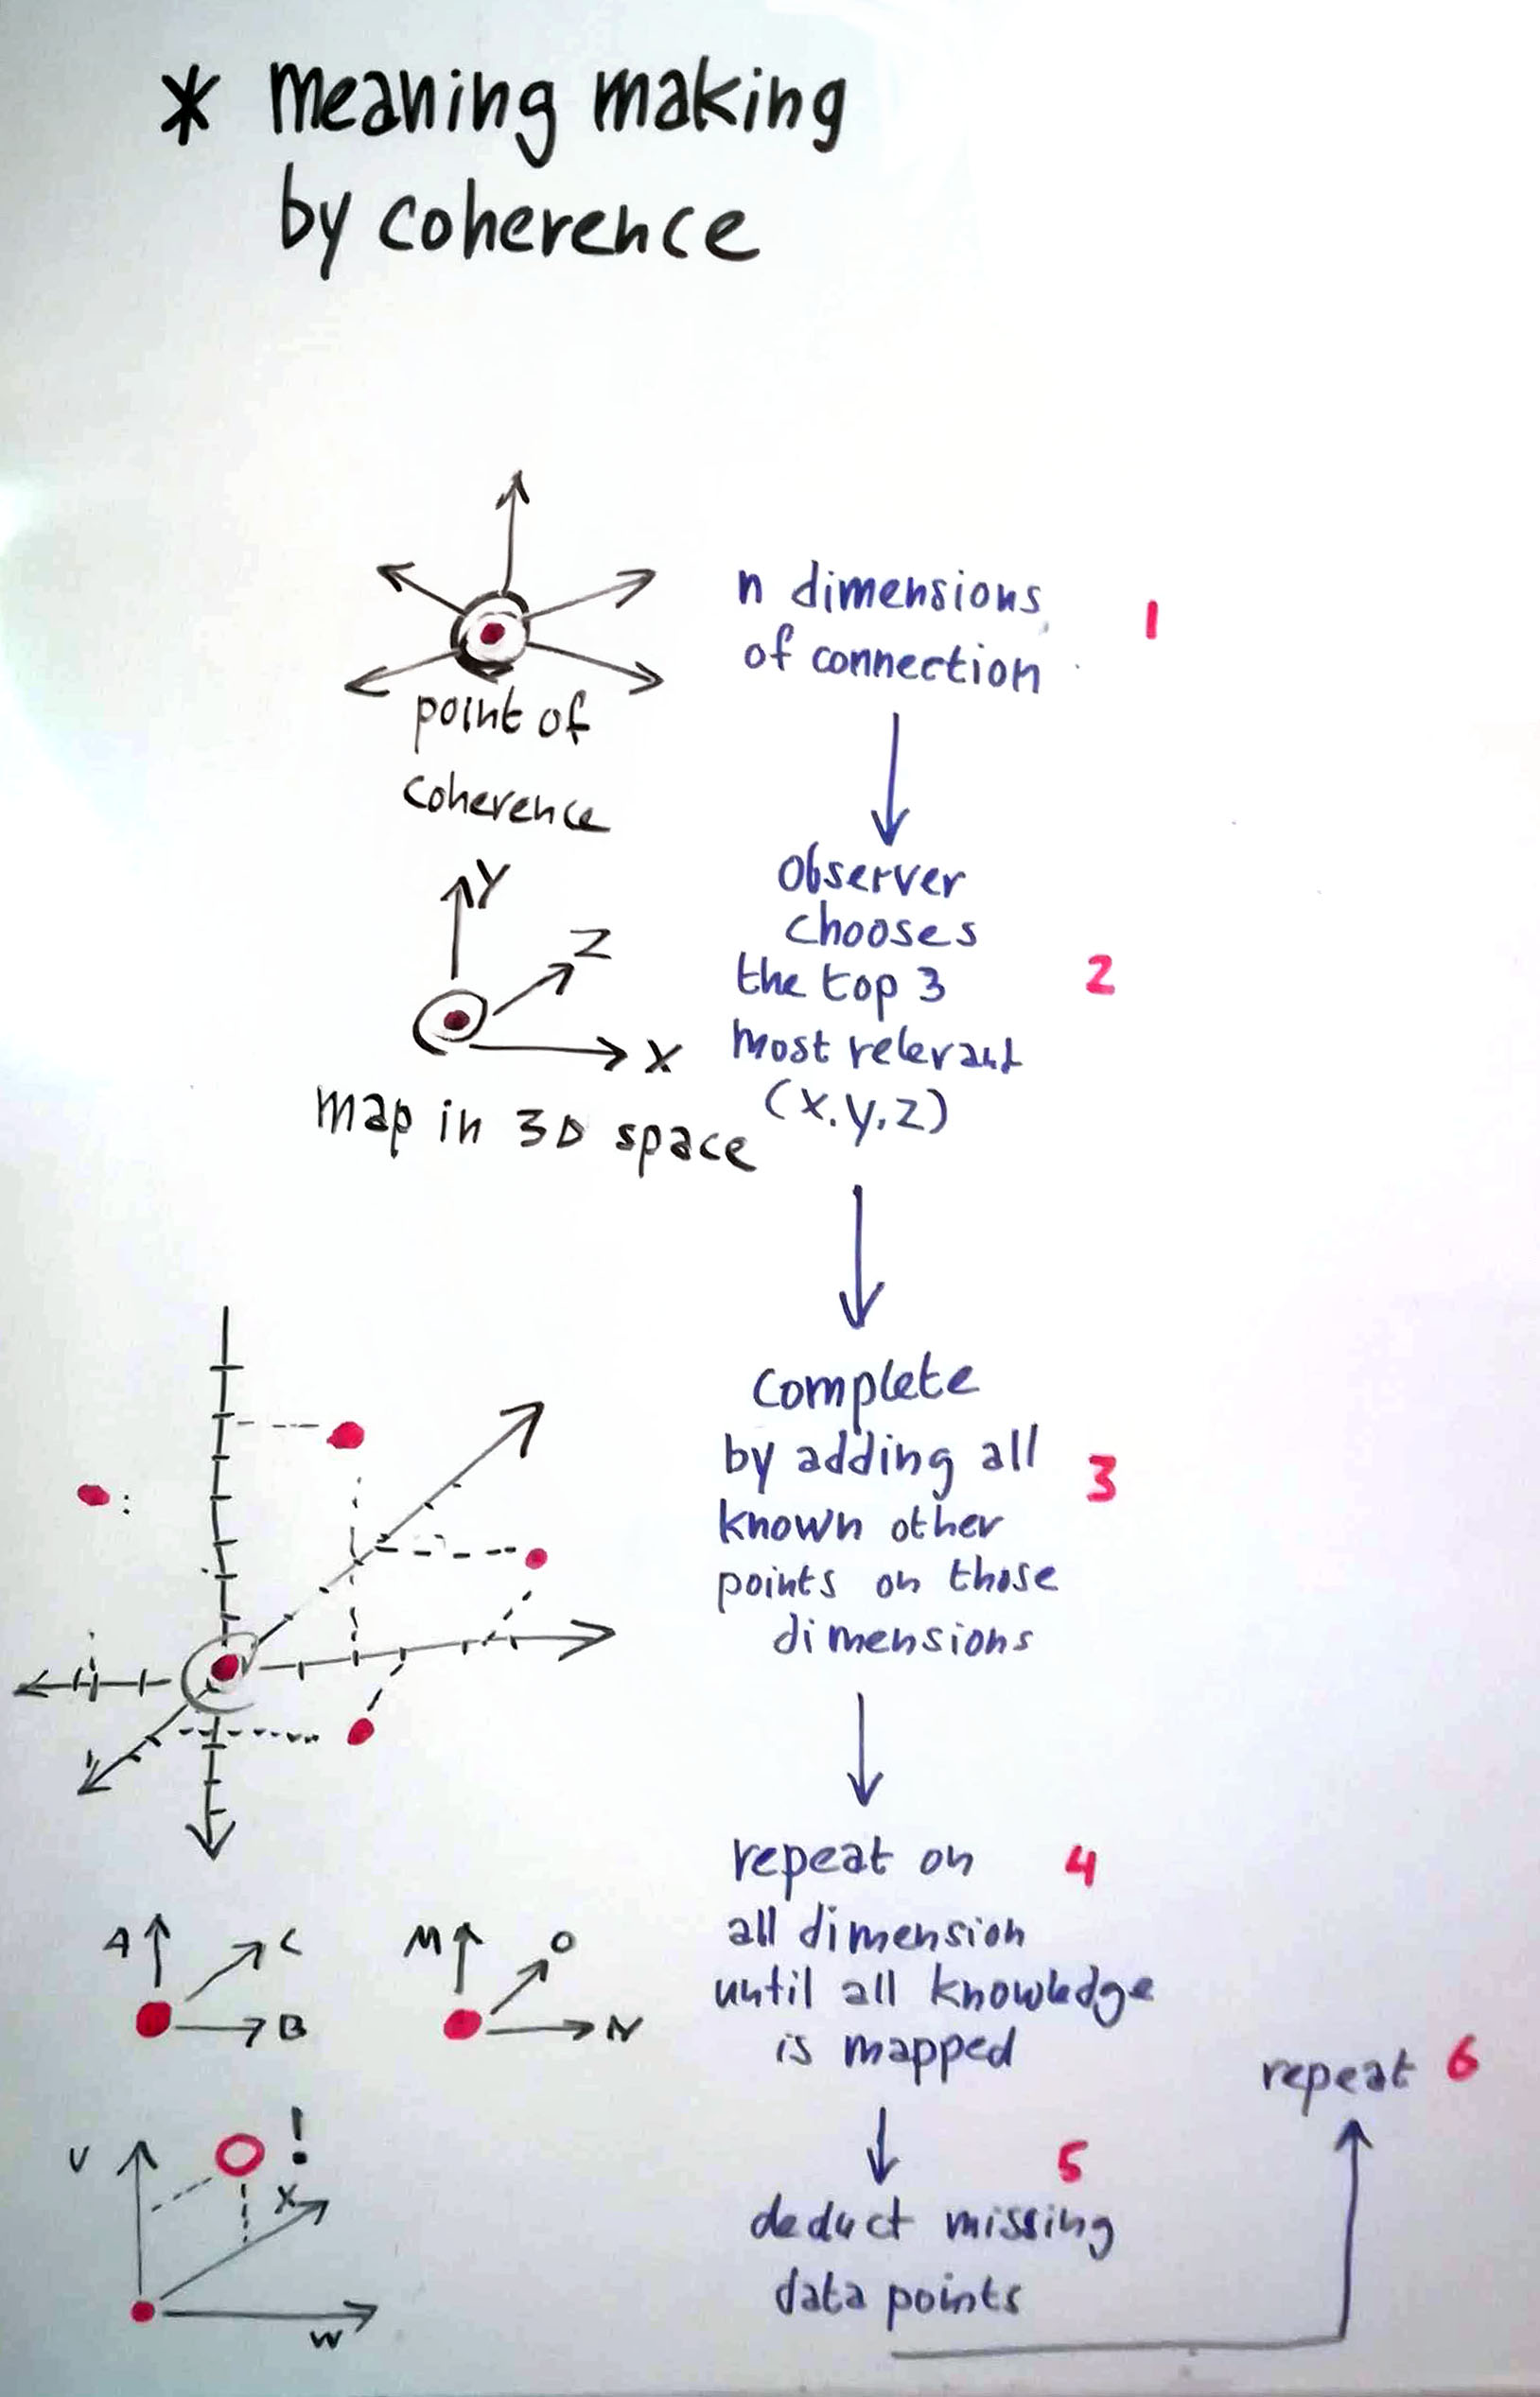 * meaning making
by coherence
n dimensions
of connection
1
point of
coherence
Y
Z
X
map in 3D space
Observer
chooses
the top 3
most relevant
(x,y,z)
2
Complete
by adding all
known other
points on those
dimensions
3
repeat on
all dimension
until all knowledge
is mapped
4
A
C
B
M
O
N
deduct missing
data points
5
V
!
X
W
repeat 6